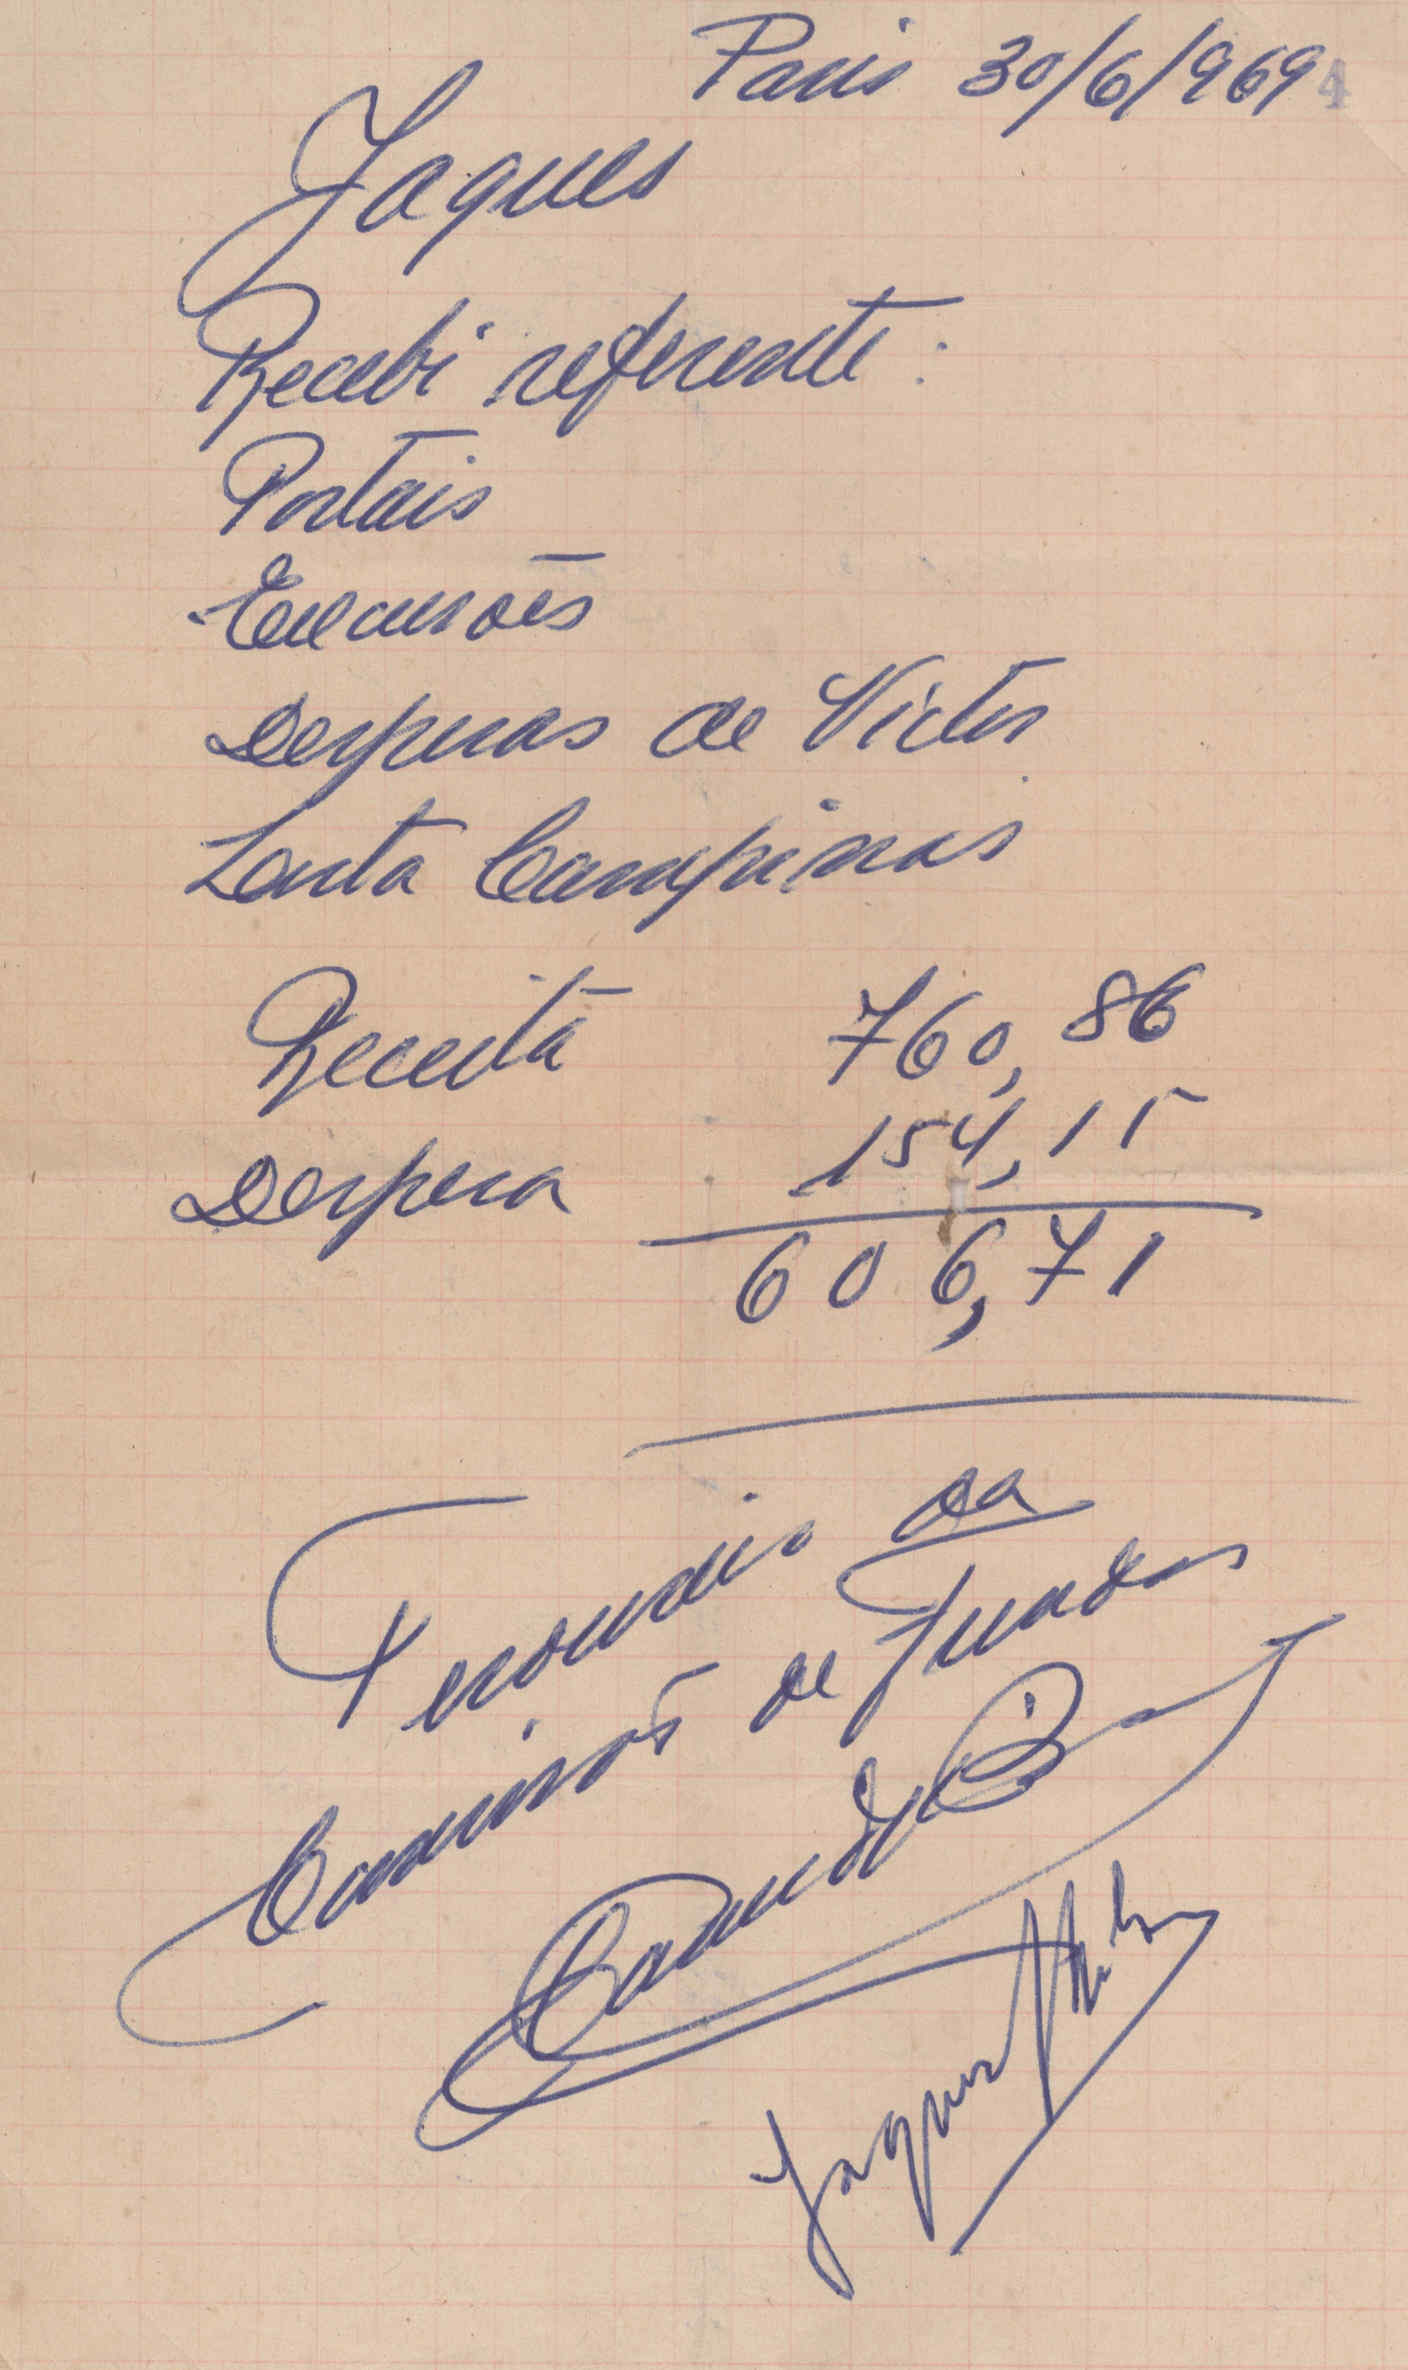 Paris 30/6/969
4
Jaques
Recebi referente :
Postais
Excursões
Despesas de Victor
Santa Campinas
Receita 760,86
Despesa 154,15
606,71
Tesoureiro da
Comissão de Fundos
Jaques